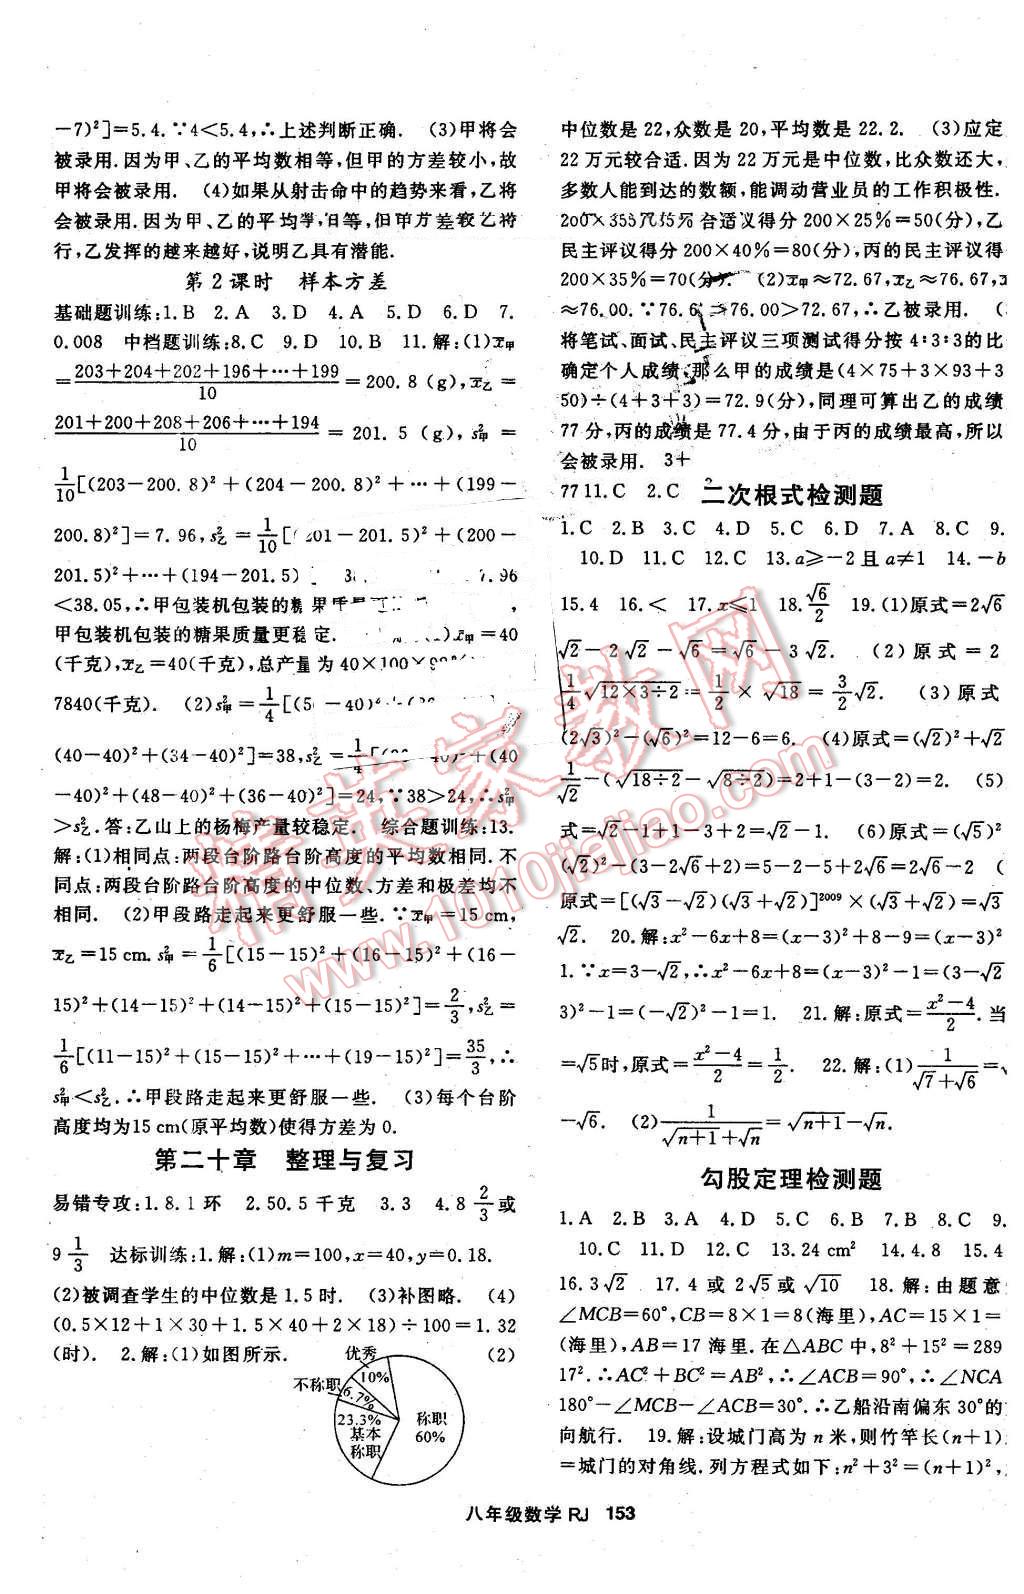 －7)²]＝5.4.∵4＜5.4,∴上述判断正确. (3)甲将会
被录用.因为甲、乙的平均数相等,但甲的方差较小,故
甲将会被录用. (4)如果从射击命中的趋势来看,乙将
会被录用.因为甲、乙的平均 相等,但甲方差较乙
行,乙发挥的越来越好,说明乙具有潜能.
第2课时 样本方差
基础题训练:1.B 2.A 3.D 4.A 5.D 6.D 7.
0.008 中档题训练:8.C 9.D 10.B 11.解:(1)x̄甲
＝(203＋204＋202＋196＋…＋199)/10＝200.8(g),x̄乙＝
(201＋200＋208＋206＋…＋194)/10＝201.5(g),s²甲＝
1/10[(203－200.8)²＋(204－200.8)²＋…＋(199－
200.8)²]＝7.96,s²乙＝1/10[(201－201.5)²＋(200－
201.5)²＋…＋(194－201.5) 7.96
＜38.05,∴甲包装机包装的糖果质量
甲包装机包装的糖果质量更稳定. (1)x̄甲＝40
(千克),x̄乙＝40(千克),总产量为40×100×
7840(千克). (2)s²甲＝1/4[(5 －40)²＋
(40－40)²＋(34－40)²]＝38,s²乙＝1/4[ －40)²＋(40
－40)²＋(48－40)²＋(36－40)²]＝24,∵38＞24,∴s²甲
＞s²乙.答:乙山上的杨梅产量较稳定. 综合题训练:13.
解:(1)相同点:两段台阶路台阶高度的平均数相同.不
同点:两段台阶路台阶高度的中位数、方差和极差均不
相同. (2)甲段路走起来更舒服一些.∵x̄甲＝15 cm,
x̄乙＝15 cm.s²甲＝1/6[(15－15)²＋(16－15)²＋(16－
15)²＋(14－15)²＋(14－15)²＋(15－15)²]＝2/3,s²乙＝
1/6[(11－15)²＋(15－15)²＋…＋(19－15)²]＝35/3,∴
s²甲＜s²乙.∴甲段路走起来更舒服一些. (3)每个台阶
高度均为15 cm(原平均数)使得方差为0.
第二十章 整理与复习
易错专攻:1.8.1环 2.50.5千克 3.3 4.8 2/3或
9 1/3 达标训练:1.解:(1)m＝100,x＝40,y＝0.18.
(2)被调查学生的中位数是1.5时. (3)补图略. (4)
(0.5×12＋1×30＋1.5×40＋2×18)÷100＝1.32
(时). 2.解:(1)如图所示. (2)
优秀
10%
不称职
6.7%
23.3%
基本
称职
称职
60%
中位数是22,众数是20,平均数是22.2. (3)应定
22万元较合适.因为22万元是中位数,比众数还大,
多数人能到达的数额,能调动营业员的工作积极性.
合适议得分200×25%＝50(分),乙
民主评议得分200×40%＝80(分),丙的民主评议得
200×35%＝70(分). (2)x̄甲≈72.67,x̄乙≈76.67,x
≈76.00.∵76.6 ＞76.00＞72.67,∴乙被录用. (
将笔试、面试、民主评议三项测试得分按4:3:3的比
确定个人成绩,那么甲的成绩是(4×75＋3×93＋3
50)÷(4＋3＋3)＝72.9(分),同理可算出乙的成绩
77分,丙的成绩是77.4分,由于丙的成绩最高,所以
会被录用. 3＋
77 1 1.C 2.C 二次根式检测题
1.C 2.B 3.C 4.D 5.C 6.D 7.A 8.C 9.
10.D 11.C 12.C 13.a≥－2且a≠1 14.－b
15.4 16.＜ 17.x≤1 18.√6/2 19.(1)原式＝2√6
√2－2√2－√6＝√6－3√2. (2)原式＝2
1/4√(12×3÷2)＝1/2×√18＝3/2√2. (3)原式
(2√3)²－(√6)²＝12－6＝6. (4)原式＝(√2)²＋√2
1/√2－(√(18÷2)－√(8÷2))＝2＋1－(3－2)＝2. (5)
式＝√2－1＋1－3＋2＝√2－1. (6)原式＝(√5)²
(√2)²－(3－2√6＋2)＝5－2－5＋2√6＝2√6－2 (
原式＝[(√3－√2)(√3＋√2)]²⁰⁰⁹×(√3＋√2)＝√3
√2. 20.解:x²－6x＋8＝(x－3)²＋8－9＝(x－3)²
1.∵x＝3－√2,∴x²－6x＋8＝(x－3)²－1＝(3－√2
3)²－1＝(－√2)²－1＝1. 21.解:原式＝(x²－4)/2.当
＝√5时,原式＝(x²－4)/2＝1/2. 22.解:(1)1/(√7＋√6)＝
－√6. (2)1/(√(n＋1)＋√n)＝√(n＋1)－√n.
勾股定理检测题
1.A 2.B 3.A 4.D 5.C 6.B 7.B 8.C 9.
10.C 11.D 12.C 13.24 cm² 14.4.8 15.4
16.3√2 17.4或2√5或√10 18.解:由题意
∠MCB＝60°,CB＝8×1＝8(海里),AC＝15×1＝
(海里),AB＝17海里.在△ABC中,8²＋15²＝289
17².∴AC²＋BC²＝AB²,∴∠ACB＝90°,∴∠NCA
180°－∠MCB－∠ACB＝30°.∴乙船沿南偏东30°的
向航行. 19.解:设城门高为n米,则竹竿长(n＋1)
＝城门的对角线.列方程式如下:n²＋3²＝(n＋1)²,
八年级数学 RJ 153
精英家教网
www.1010jiajiao.com